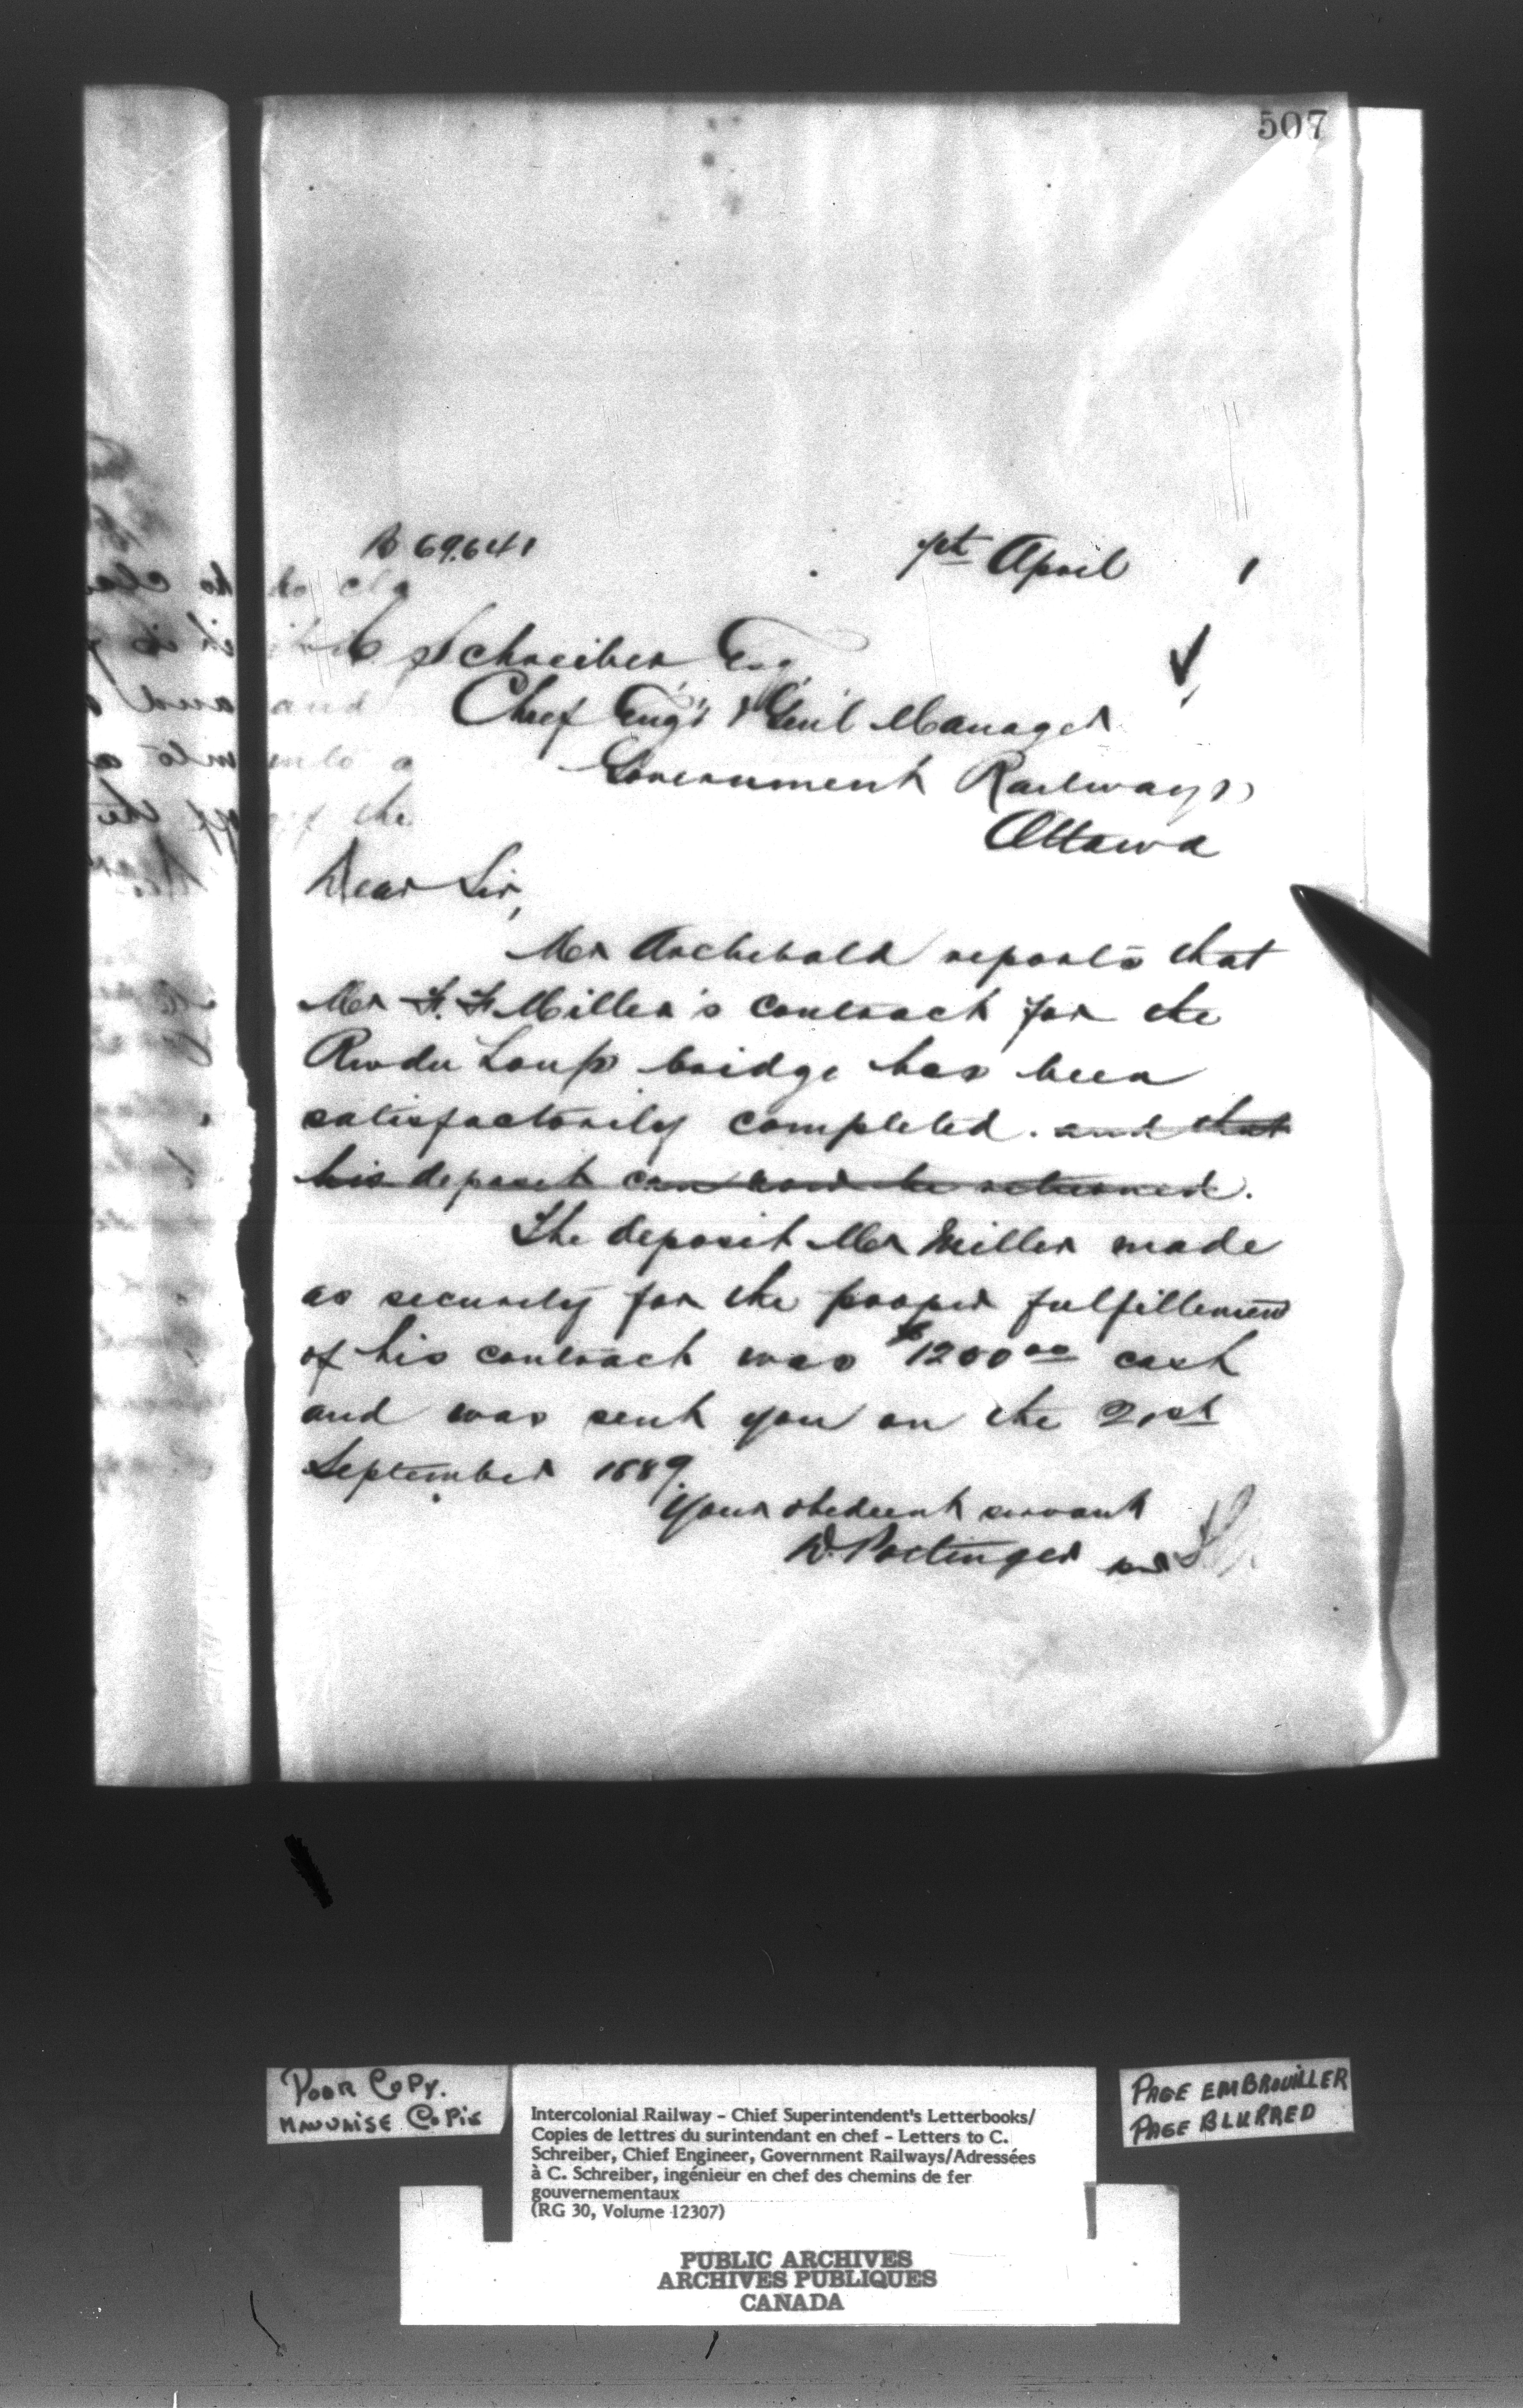 507
B 69.641
1st April 1
C Schreiber Esq
Chief Eng'r & Gen'l Manager
Government Railways
Ottawa
Dear Sir,
Mr Archibald reports that
Mr F. F. Miller's contract for the
Riv du Loup bridge has been
satisfactorily completed. and that
his deposit can now be returned.
The deposit Mr Miller made
as security for the proper fulfillment
of his contract was $1200 00 cash
and was sent you on the 21st
September 1889.
Your obedient servant
D. Pottinger
POOR COPY.
MAUVAISE COPIE
Intercolonial Railway - Chief Superintendent's Letterbooks/
Copies de lettres du surintendant en chef - Letters to C.
Schreiber, Chief Engineer, Government Railways/Adressées
à C. Schreiber, ingénieur en chef des chemins de fer
gouvernementaux
(RG 30, Volume 12307)
PAGE EMBROUILLER
PAGE BLURRED
PUBLIC ARCHIVES
ARCHIVES PUBLIQUES
CANADA